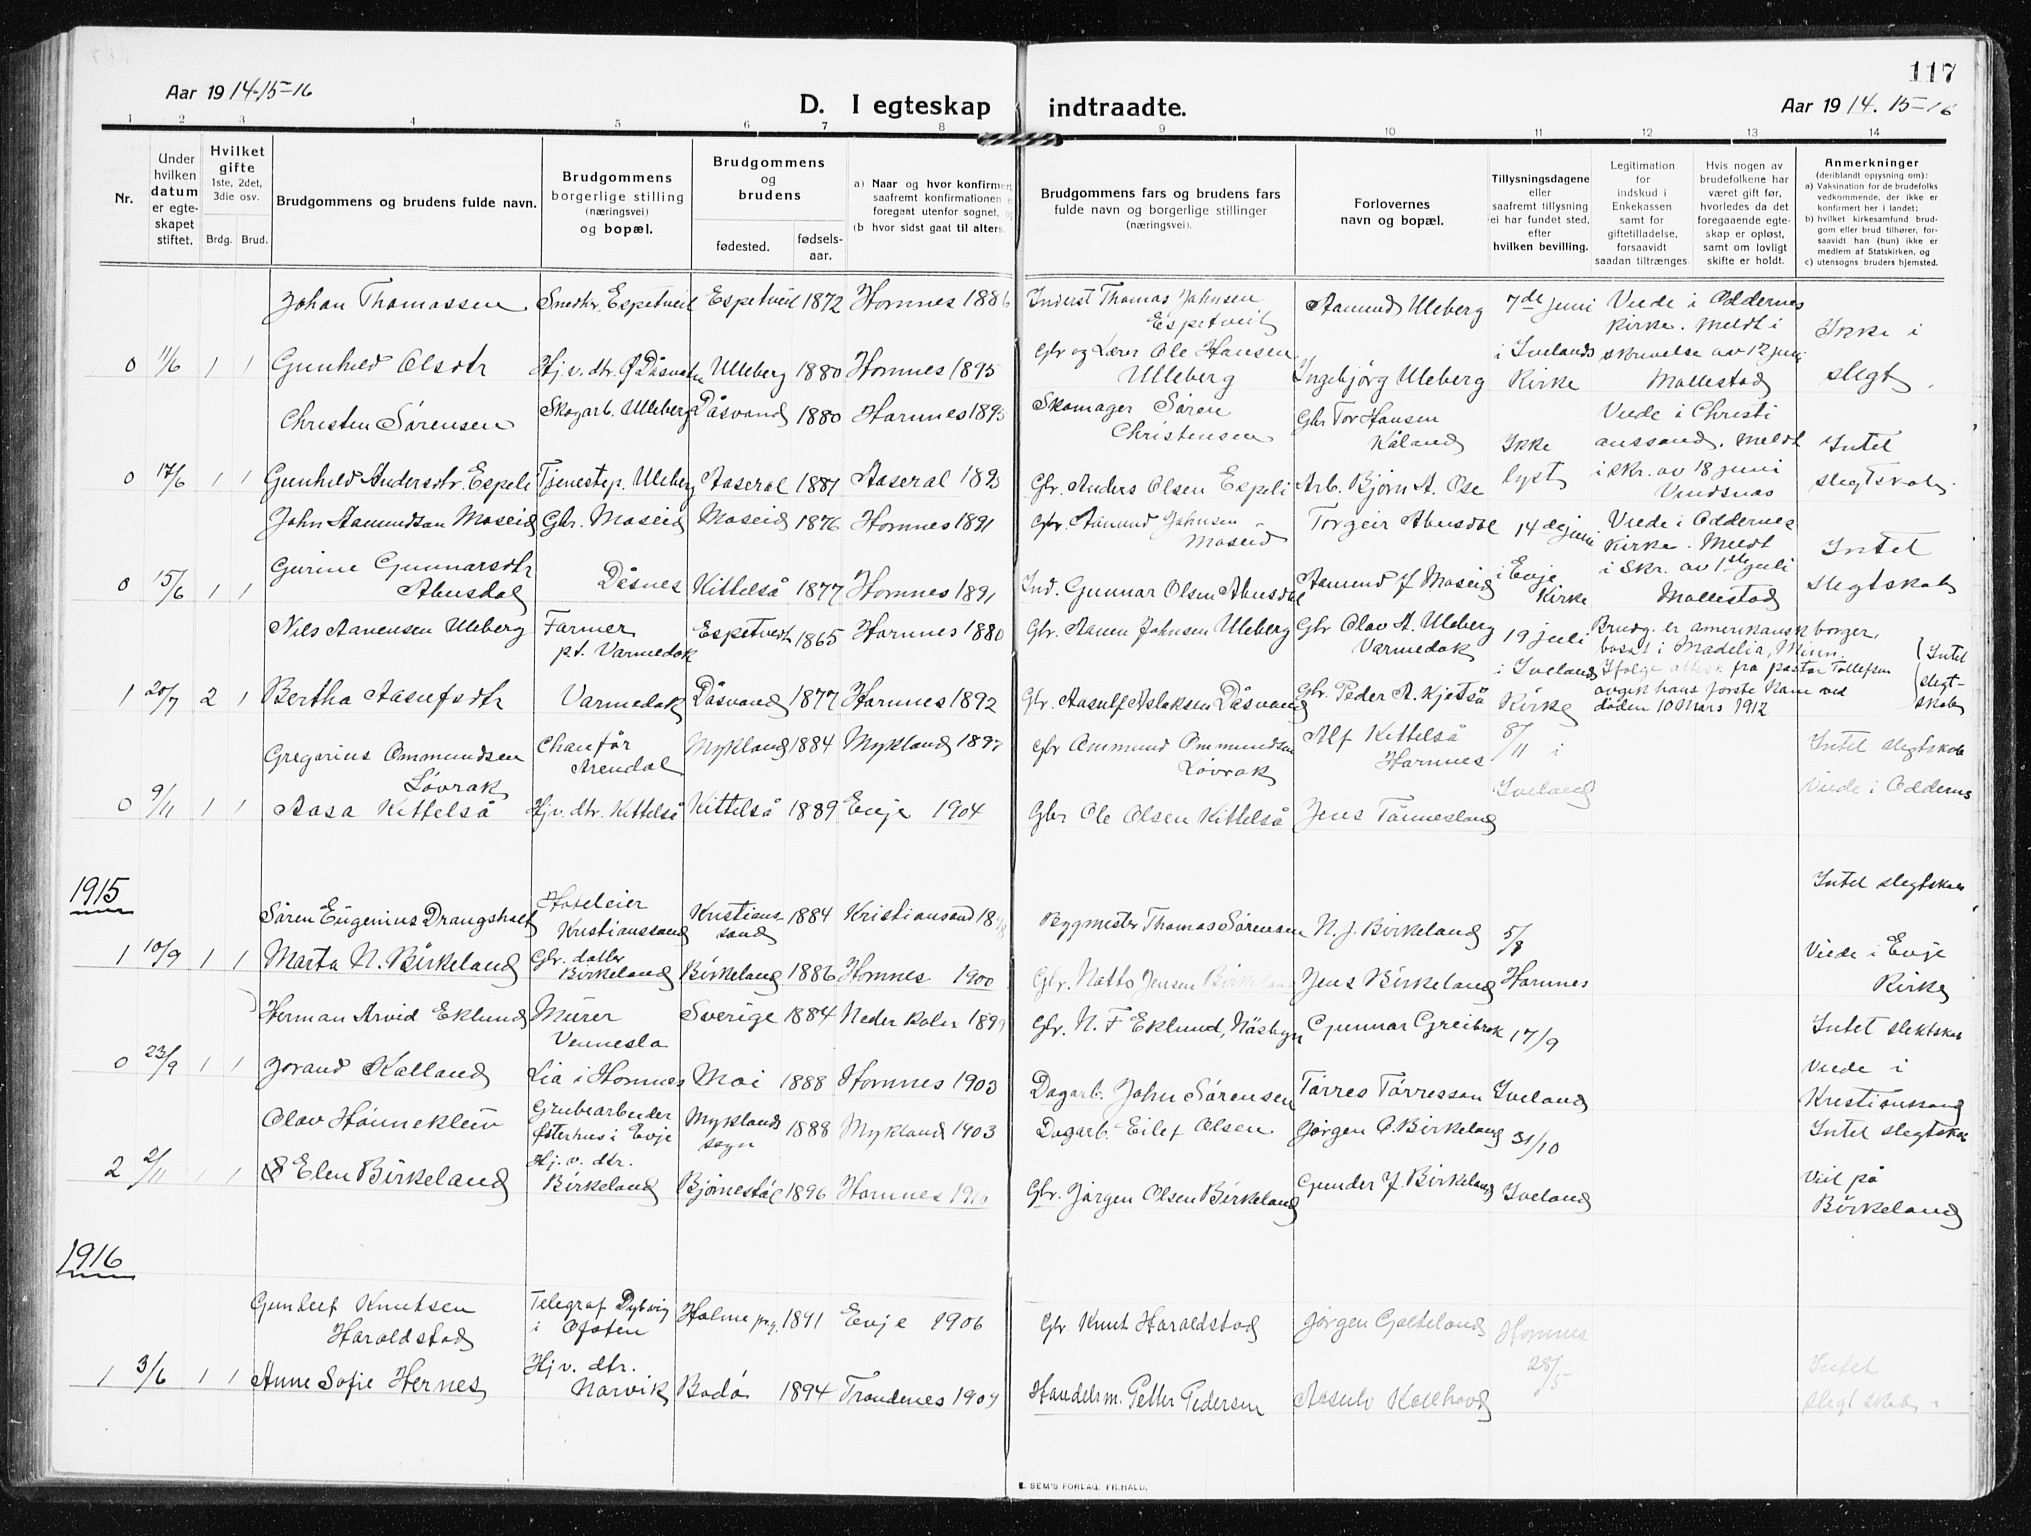 117
Aar 1914-15-16
D. I egteskap indtraadte.
Aar 1914. 15-16
1 2 3 4 5 6 7 8 9 10 11 12 13 14
Nr.
Under hvilken datum er egteskapet stiftet.
Hvilket gifte 1ste, 2det, 3die osv.
Brdg. Brud.
Brudgommens og brudens fulde navn.
Brudgommens borgerlige stilling (næringsvei) og bopæl.
Brudgommens og brudens
fødested. fødselsaar.
a) Naar og hvor konfirmert saafremt konfirmationen foregaat utenfor sognet,
b) hvor sidst gaat til alters.
Brudgommens fars og brudens fars fulde navn og borgerlige stillinger (næringsvei).
Forlovernes navn og bopæl.
Tillysningsdagene eller saafremt tillysning ei har fundet sted, efter hvilken bevilling.
Legitimation for indskud i Enkekassen samt for giftetilladelse, forsaavidt saadan tiltrænges.
Hvis nogen av brudefolkene har været gift før, hvorledes da det foregaaende egteskap er opløst, samt om lovligt skifte er holdt.
Anmerkninger (deriblandt opysning om): a) Vaksination for de brudefolks vedkommende, der ikke er konfirmert her i landet; b) hvilket kirkesamfund brudgom eller brud tilhører, forsaavidt han (hun) ikke er medlem af Statskirken, og c) utensogns bruders hjemsted.
Johan Thomassen Smedhr. Espetveit Espetveit 1872 Hornnes 1886 Inderst Thomas Jahnsen Espetveit Aamund Uleberg 7de juni Viede i Oddernes Kirke. Meldt i
0 11/6 1 1 Gunhild Olsdtr Hj. v. dtr. Dåsvatn Uleberg 1880 Hornnes 1895 Gbr og Lærer Ole Hansen Uleberg Ingebjörg Uleberg i Ivelands Kirke skrivelse av 12 juni Mollestad Ikke i slegt.
Christen Sørensen Skogarb. Uleberg Dåsvand 1880 Hornnes 1895 Skomager Søren Christensen Gbr Tor Hansen Kåland Ikke Viede i Christianssand. Meldt
0 17/6 1 1 Gunhild Andersdtr. Espeli Tjenestep. Uleberg Aaseral 1881 Aaseral 1895 Gbr. Anders Olsen Espeli Arb. Bjørn A. Ose lyst i skr. av 18 juni Vindsnæs Intet slegtskab.
John Aamundsen Moseid Gbr. Moseid Moseid 1876 Hornnes 1891 Gbr. Aamund Johnsen Moseid Torgeir Abusdal 14de juni Viede i Oddernes Kirke. Meldt
0 15/6 1 1 Gurine Gunnarsdtr Abusdal Dåsnes Kittelså 1877 Hornnes 1891 Ind. Gunnar Olsen Abusdal Aamund J. Moseid i Evje Kirke i skr. av 1ste juli Mollestad Intet slegtskab
Nils Aanensen Uleberg Farmer pt. Varmedok Espetveit 1865 Hornnes 1880 Gbr. Aanen Johnsen Uleberg Gbr Olav A. Uleberg Varmedok 19 juli Brudg. er amerikansk borger, bosat i Madelia, Minn.
1 20/7 2 1 Bertha Aasulfsdtr Varmedok Dåsvand 1877 Hornnes 1892 Gbr. Aasulf Aslaksen Dåsvand Gbr. Peder A. Kjetså i Iveland Kirke Ifølge attest fra pastor Tollefsen avgik hans første Kone ved døden 10 Mars 1912 Intet slegtskab
Gregorius Ommundsen Løvrak Chauför Arendal Mykland 1884 Mykland 1897 Gbr Ommund Ommundsen Løvrak Alf Kittelså Hornnes 8/11 i Intet slegtskab
0 9/11 1 1 Aasa Kittelså Hj v. dtr. Kittelså Kittelså 1889 Evje 1904 Gbr Ole Olsen Kittelså Jens Tønnesland Iveland Viede i Oddernes
1915
Søren Eugenius Drangsholt Hoteleier Kristianssand Kristianssand 1884 Kristiansand Bygmester Thomas Sørensen N. J. Birkeland 5/8 Intet slegtskab
1 10/9 1 1 Marta N. Birkeland Gbr. datter Birkeland Birkeland 1886 Hornnes 1900 Gbr. Natto Jensen Birkeland Jens Birkeland Hornnes Viede i Evje Kirke
Herman Arvid Eklund Murer Vennesla Sverige 1884 Neder Kalix 1899 Gbr. N. F Eklund, Näsbyn Gunnar Greibrok 17/9 Intet slektskab
0 23/9 1 1 Jorand Kalland Lia i Hornnes Moi 1888 Hornnes 1903 Dagarb. John Sørensen Tørres Tørresson Iveland Viede i Kristianssand
Olav Hønnekleiv Grubearbeider Østerhus i Evje Myklands sogn 1888 Mykland 1903 Dagarb. Eilef Olsen Jørgen O. Birkeland 31/10 Intet slegtskab
2 2/11 1 1 Elen Birkeland Hj. v. dtr. Birkeland Bjørnestøl 1896 Hornnes 1910 Gbr. Jørgen Olsen Birkeland Gunder J. Birkeland Iveland Viet på Birkeland
1916
Gunleif Knutsen Haraldstad Telegraf Dybvig i Ofoten Holme pg. 1891 Evje 1906 Gbr. Knut Haraldstad Jørgen Galteland Hornnes
1 3/6 1 1 Anne Sofie Hernes Hj v. dtr. Narvik Bodø 1894 Trondenes 1909 Handelsm. Petter Pedersen Aasulv Kallhovd 28/5 Intet slegtskab.
E. SEM'S FORLAG. FR.HALD.